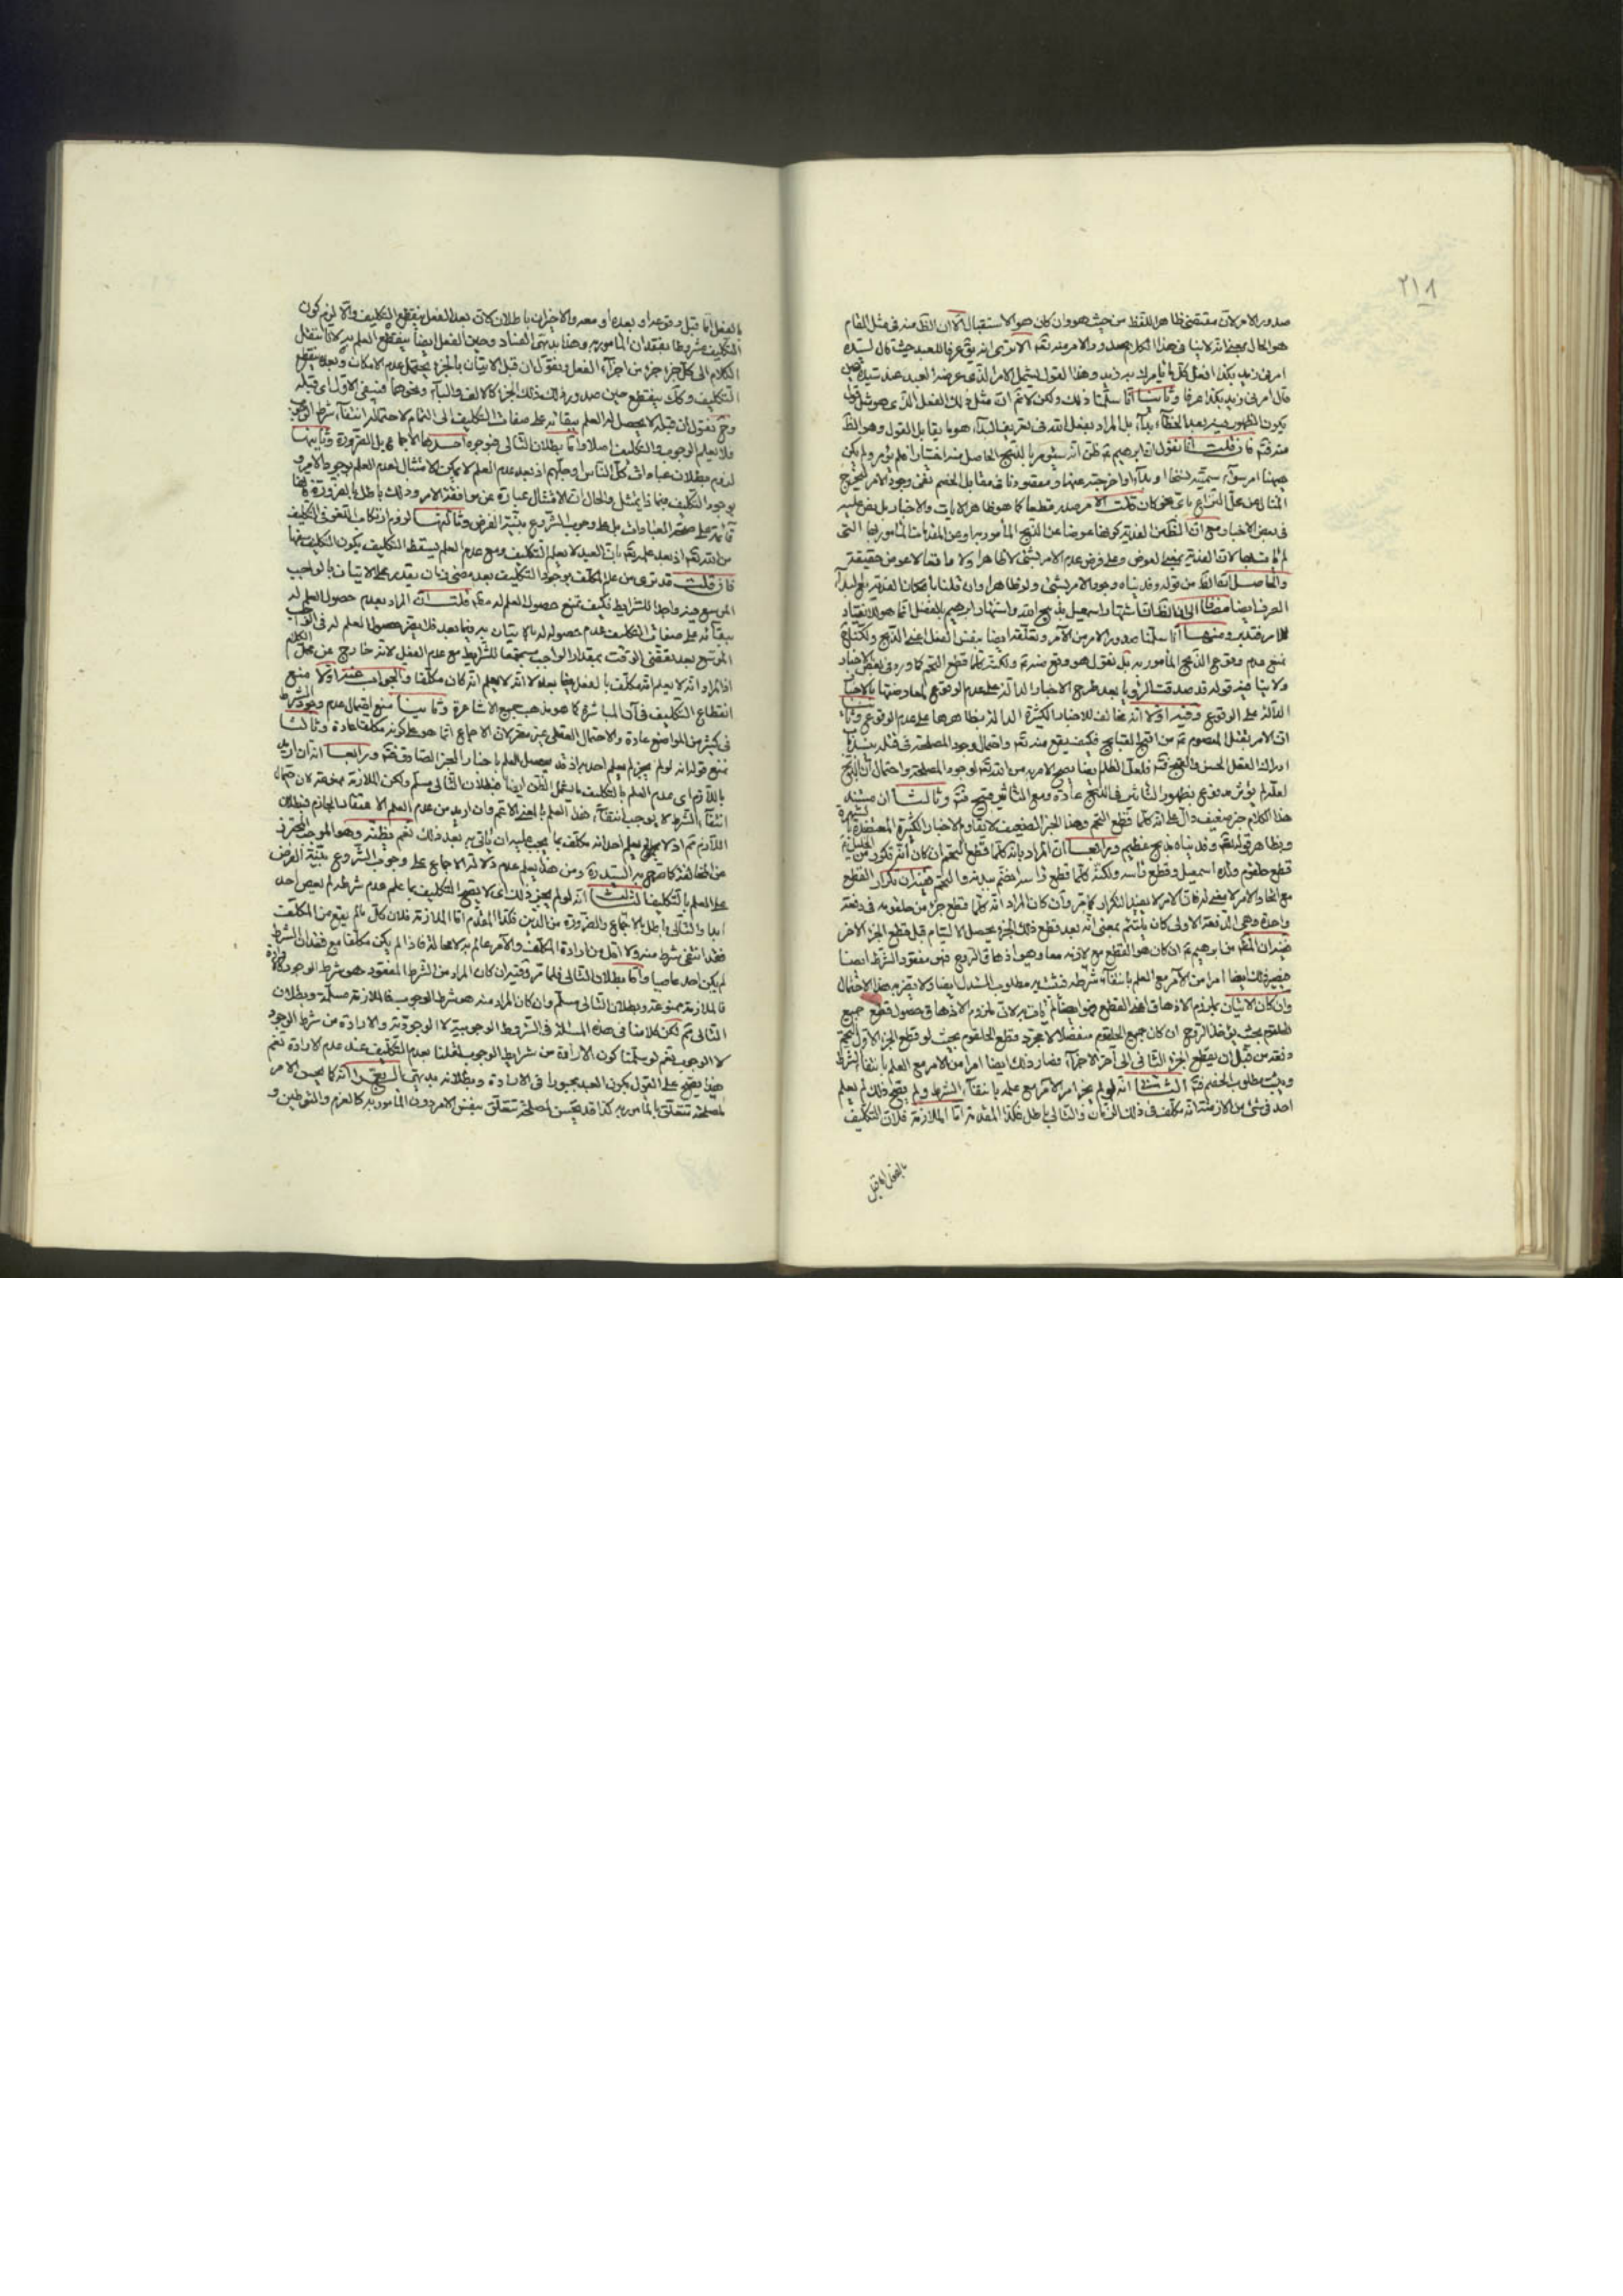 ٢١٨
صدور الامر لان مقتضى ظاهر اللفظ من حيث هو وان كان هو الاستقبال الا ان الظ منه فى مثل المقام
هو الحال بمعنى انه لا ينافى هذا الكلام والامر منه تعم الا ترى انه يق عرفا للعبد حيث قال لسيده
امرنى زيد بكذا افعل كل ما يأمرك به زيد وهذا القول يشمل الامر الذى عرضه العبد عند سيده
قال امرنى زيد بكذا عرفا وثانيا انا سلمنا ذلك ولكن لا تم ان مثل ذلك الفعل الذى هو
يكون الظهور بعد الخفاء بداء بل المراد بفعل الله فى تعريف البداء هو ما يقابل القول وهو الظ
منه فتم فان قلت انا نقول ان ابرهيم ظن انه سيؤمر بالذبح الحاصل منه ولم يكن
هيهنا امر سواء سميته نسخا او بداء او اخرجته عنهما ومقصودنا فى مقابل الخصم نفى وجود الامر
المتنازع باى نحو كان قلت الامر صدر قطعا كما هو ظاهر الايات والاخبار بل
فى بعض الاخبار مع ان الظ من الفدية كونها عوضا عن الذبح المأمور به او عن المقدمات المأمور بها التى
لم يأت بها لان الفدية بمعنى العوض وعلى فرض عدم الامر بشئ لا ظاهرا ولا واقعا لا عوض حقيقة
والحاصل ان الظ من قوله وفديناه وجود الامر بشئ ولو ظاهرا وان قلنا
العرف ايضا مضافا الى ان الظ ان اشتهار اسمعيل بذبيح الله واشتهار ابرهيم بالفضل انما هو للانقياد
للامر فتدبر ومنها انا سلمنا صدور الامر من الآمر وتعلقه ايضا بنفس الفعل اعنى الذبح ولكن
نمنع عدم وقوع الذبح المأمور به بل نقول هو وقع منه ولكنه كلما قطع التحم كما ورد فى بعض الاخبار
ولا ينافيه قوله قد صدقت الرؤيا بعد طرح الاخبار الدالة على عدم الوقوع لمعارضتها بالاخبار
الدالة على الوقوع وفيه اولا انه مخالف للاخبار الكثيرة الدالة بظاهرها على عدم الوقوع وثانيا
ان الامر بقتل المعصوم من اقبح القبايح فكيف يقع منه تعم واحتمال وجود المصلحة فى قتله
ادراك العقل الحسن والقبح فتم فلعل الظلم ايضا يصح الامر به من الله تعم لوجود المصلحة واحتمال ان الذبح
لعله لم يؤثر مدفوع بظهور التأثير فى الذبح عادة ومع التأثير قبيح فتم وثالثا ان مستند
هذا الكلام خبر ضعيف دال على انه كلما قطع التحم وهذا الخبر الضعيف لا يقاوم الاخبار الكثيرة المعتضدة بالشهرة
وبظاهر قوله تعم وفديناه بذبح عظيم ورابعا ان المراد بانه كلما قطع التحم ان كان انه
قطع حلقوم ولده اسمعيل وقطع رأسه ولكنه كلما قطع رأسه انضم ببدنه والتحم ففيه ان تكرار القطع
مع اتحاد الامر لا معنى له فان الامر لا يفيد التكرار كما مر وان كان المراد انه كلما قطع جزء من حلقومه فى دفعة
واحدة وهى الدفعة الاولى كان يلتئم بمعنى انه بعد قطع ذلك الجزء يحصل الالتيام قبل قطع الجزء الاخر
ففيه ان من ابرهيم ان كان هو القطع مع لازمه معا وهو اذهاق الروح فهو مفقود الشرط ايضا
فيصير ذلك ايضا امرا من الآمر مع العلم بانتفاء شرطه فثبت به مطلوب المستدل ايضا ولا يضره هذا الاحتمال
وان كان الاتيان بلزوم الاذهاق لهذا القطع فهو ايضا لم يأت به لان لزوم الاذهاق فى حصول قطع جميع
الحلقوم بحيث يؤخذ الروح ان كان جميع الحلقوم منفصلا لا مجرد قطع الحلقوم بحيث لو قطع الجزء الاول التحم
دفعة من قبل ان يقطع الجزء الثانى الى آخر الاجزاء فصار ذلك ايضا امرا من الآمر مع العلم بانتفاء الشرط
ويثبت مطلوب الخصم فتم الثانى انه لو لم يجز امر الآمر مع علمه بانتفاء الشرط ولم يصح ذلك لم يعلم
احد فى شئ من الازمنة انه مكلف فى ذلك الزمان والتالى باطل فكذا المقدم اما الملازمة فلان التكليف
بالفعل اما قبل
بالفعل اما قبل وقوعه او بعده او معه والاخيران باطلان لان بعد الفعل ينقطع التكليف والا لزم كون
التكليف مشروطا بفقدان المأمور به وهذا بديهى الفساد وحين الفعل ايضا ينقطع العلم به لانا ننقل
الكلام الى كل جزء جزء من اجزاء الفعل ونقول ان قبل الاتيان بالجزء يحتمل عدم الامكان وبعده ينقطع
التكليف وكك ينقطع حين صدوره ذلك الجزء كالالف والباء ونحوهما فبقى الاول اى قبله
وح نقول ان قبله لا يحصل له العلم ببقائه على صفات التكليف الى التمام لاحتمال انتفاء شرط الوجوب
فلا يعلم الوجوب والتكليف اصلا واما بطلان التالى فبوجوه احدها الاجماع بل الضرورة وثانيها
لزوم بطلان عبادات كل الناس او جلهم اذ بعد عدم العلم لا يمكن الامتثال لعدم العلم بوجود الامر و
بوجود التكليف فبماذا يمتثل والحال ان الامتثال عبارة عن موافقة الامر وذلك باطل بالضرورة
قائمة على صحة العبادات بل على وجوب الشروع بنية الفرض وثالثها لزوم ارتكاب اللغو فى التكليف
من الله تعم اذ بعد علمه تعم بان العبد لا يعلم التكليف ومع عدم العلم يسقط التكليف يكون التكليف
فان قلت قد نرى من علم المكلف بوجود التكليف بعد مضى زمان يقدر على الاتيان بالواجب
الموسع فيه واجدا للشرايط فكيف تمنع حصول العلم له مط قلت ان المراد بعدم حصول العلم له
ببقائه على صفات التكليف عدم حصوله له بالاتيان به فيما بعد فلا يضر حصول العلم له فى الواجب
الموسع بعد تقضى الوقت بمقدار الواجب مستجمعا للشرايط مع عدم الفعل لانه خارج عن محل الكلام
اذ المراد انه لا يعلم انه مكلف بالفعل فيما بعد لا انه لا يعلم انه كان مكلفا والجواب عنه اولا منع
انقطاع التكليف فى آن المباشرة كما هو مذهب جميع الاشاعرة وثانيا منع احتمال عدم وجود الشرط
فى كثير من المواضع عادة والاحتمال العقلى غير مضر لان الاجماع انما هو على كونه مكلفا عادة وثالثا
نمنع قوله انه لو لم يجز لم يعلم احد به اذ قد يحصل العلم باخبار المخبر الصادق فتم ورابعا انه ان اريد
باللازم اى عدم العلم بالتكليف ما يشمل الظن ايضا فبطلان التالى مسلم ولكن الملازمة ممنوعة لان احتمال
انتفاء الشرط لا يوجب انتفاء هذا العلم بالمعنى الاعم وان اريد من عدم العلم الاعتقاد الجازم فبطلان
اللازم مم اذ لا يعلم احد انه مكلف بما يجب عليه ان يأتى به بعد ذلك نعم يظنه وهو الموجب للتحرز
عن المخالفة كما صرح به السيد ره ومن هذا يعلم عدم دلالة الاجماع على وجوب الشروع بنية الفرض
على العلم بالتكليف الثالث انه لو لم يجز ذلك اى لا يصح التكليف بما علم عدم شرطه لم يعص احد
ابدا والتالى باطل بالاجماع والضرورة من الدين فكذا المقدم اما الملازمة فلان كل ما لم يقع من المكلف
فقد انتفى شرط منه ولا اقل من ارادة المكلف والآمر عالم به لا محالة فاذا لم يكن مكلفا مع فقدان الشرط
لم يكن احد عاصيا واما بطلان التالى فلما مر وفيه ان كان المراد من الشرط المفقود هو شرط الوجود كالارادة
فالملازمة ممنوعة وبطلان التالى مسلم وان كان المراد منه هو شرط الوجوب فالملازمة مسلمة وبطلان
التالى مم لكن كلامنا فى هذه المسئلة فى الشروط الوجوبية لا الوجودية والارادة من شرط الوجود
لا الوجوب نعم لو سلمنا كون الارادة من شرايط الوجوب لقلنا بعدم التكليف عند عدم الارادة نعم
هذا يصح على القول بكون العبد مجبورا فى الارادة وبطلانه بديهى الرابع انه كما يحسن الامر
لمصلحة تتعلق بالمأمور به كذا قد يحسن لمصلحة تتعلق بنفس الامر دون المأمور به كالعزم والتوطين و